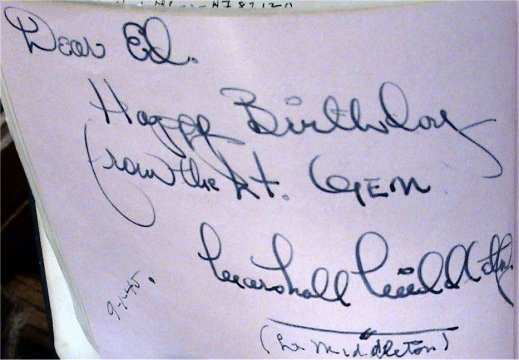 Dear Ed.
Happy Birthday
from the Lt. Gem
Marshall Middleton
9-1-45.
(Lt Middleton)